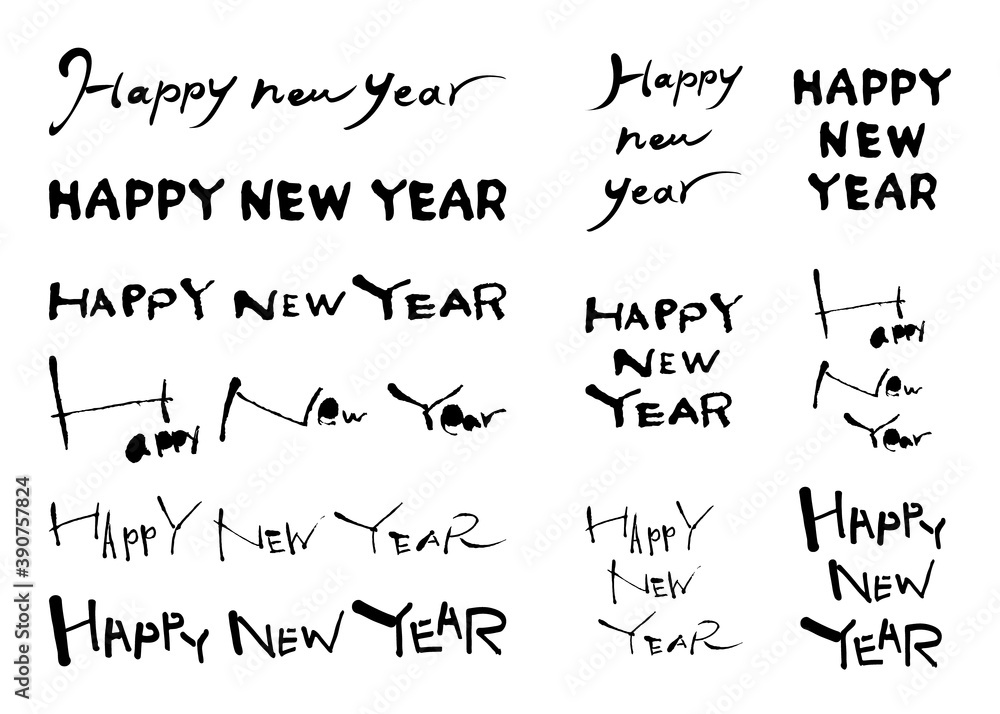 Happy new year
HAPPY NEW YEAR
HAPPY NEW YEAR
Happy New Year
HAppY NEW YEAR
HAPPY NEW YEAR
Happy
new
year
HAPPY
NEW
YEAR
HAPPY
NEW
YEAR
Happy
New
Year
HAppY
NEW
YEAR
HAPPY
NEW
YEAR
Adobe Stock | #390757824